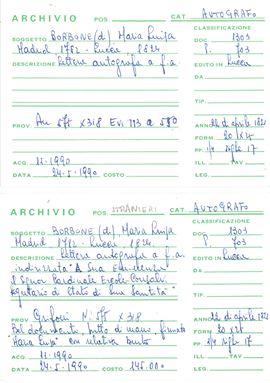 ARCHIVIO POS. CAT. AUTOGRAFO
CLASSIFICAZIONE
SOGGETTO BORBONE (di) Maria Luisa DOC 1303
Madrid 1782 - Lucca 1824 P. 703
DESCRIZIONE Lettera autografa a f.a. EDITO IN Lucca
DA
TIP.
PROV. ANNO 22 di aprile 1821
FORM. 20 x
PP.
ACQ. 11-1990 ILL. TAV.
DATA 24-5-1990 COSTO LEG.
ARCHIVIO POS. STRANIERI CAT. AUTOGRAFO
CLASSIFICAZIONE
SOGGETTO BORBONE (di) Maria Luisa DOC 1303
Madrid 1782 - Lucca 1824. P. 703
DESCRIZIONE Lettera autografa a f.a. EDITO IN Lucca
indirizzata "A Sua Eminenza DA
il Signor Cardinale Ercole Consalvi
Segretario di Stato di Sua Santità" TIP.
PROV. Grifoni N. x318 ANNO 22 di aprile 1821
Bel documento, tutto di mano, firmato FORM. 20 x
"Maria Luisa" con relativa busta PP.
ACQ. 11-1990 ILL. TAV.
DATA 24-5-1990 COSTO 145.000 LEG.